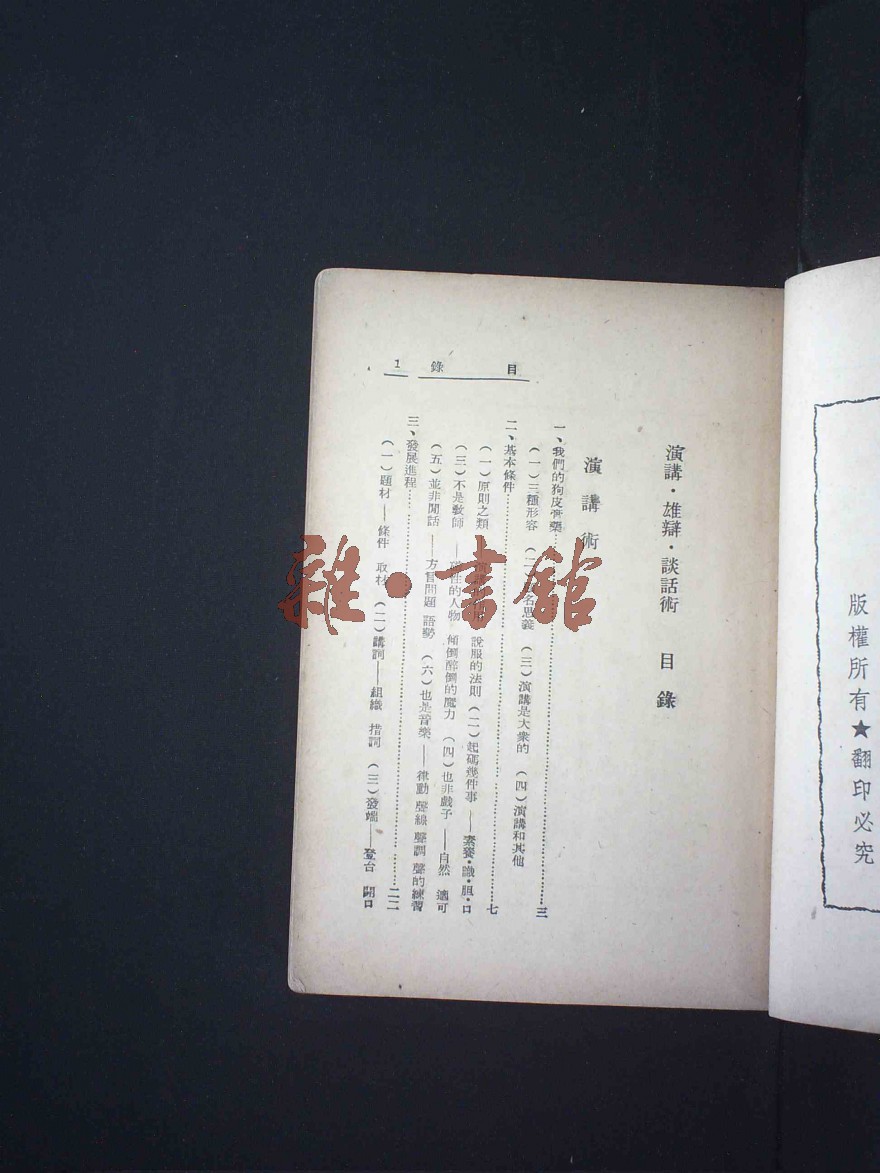 版權所有★翻印必究
演講·雄辯·談話術 目錄
演講術
一、我們的狗皮膏藥……三
（一）三種形容 名思義 （三）演講是大衆的 （四）演講和其他
二、基本條件……七
（一）原則之類 說服的法則 （二）起碼幾件事——素養·識·胆·口
（三）不是敎師 性的人物 傾倒醉倒的魔力 （四）也非戲子——自然 適可
（五）並非閒話——方言問題 語勢 （六）也是音樂——律動 聲線 聲調 聲的練習
三、發展進程……二二
（一）題材——條件 取材 （二）講詞——組織 措詞 （三）發端——登台 開口
目錄 1
雜·書館